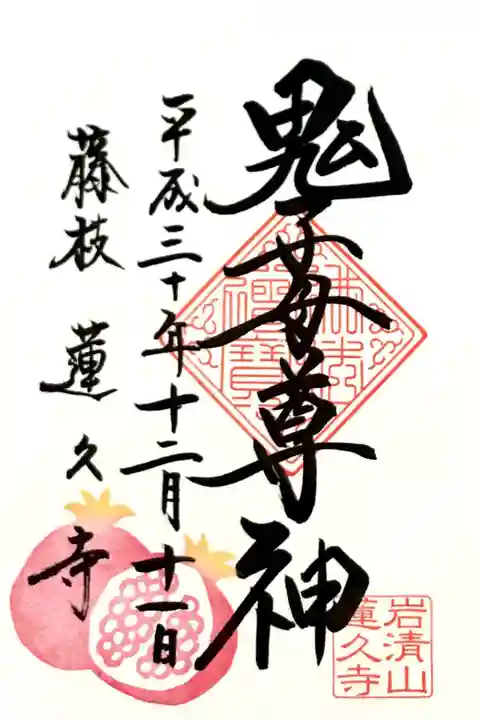 鬼子母尊神
平成三十年十二月十一日
藤枝 蓮久寺
佛法僧寳
岩清山
蓮久寺